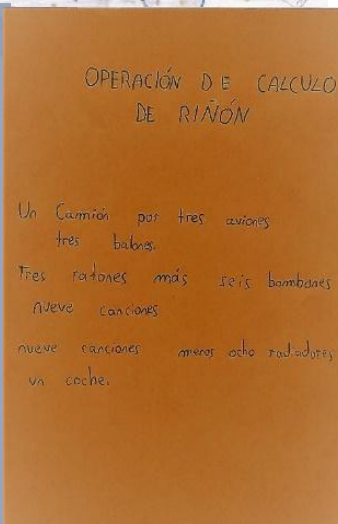 OPERACIÓN DE CALCULO
DE RIÑÓN
Un Camión por tres aviones
tres balones.
Tres ratones más seis bombones
nueve canciones
nueve canciones menos ocho radiadores
un coche.